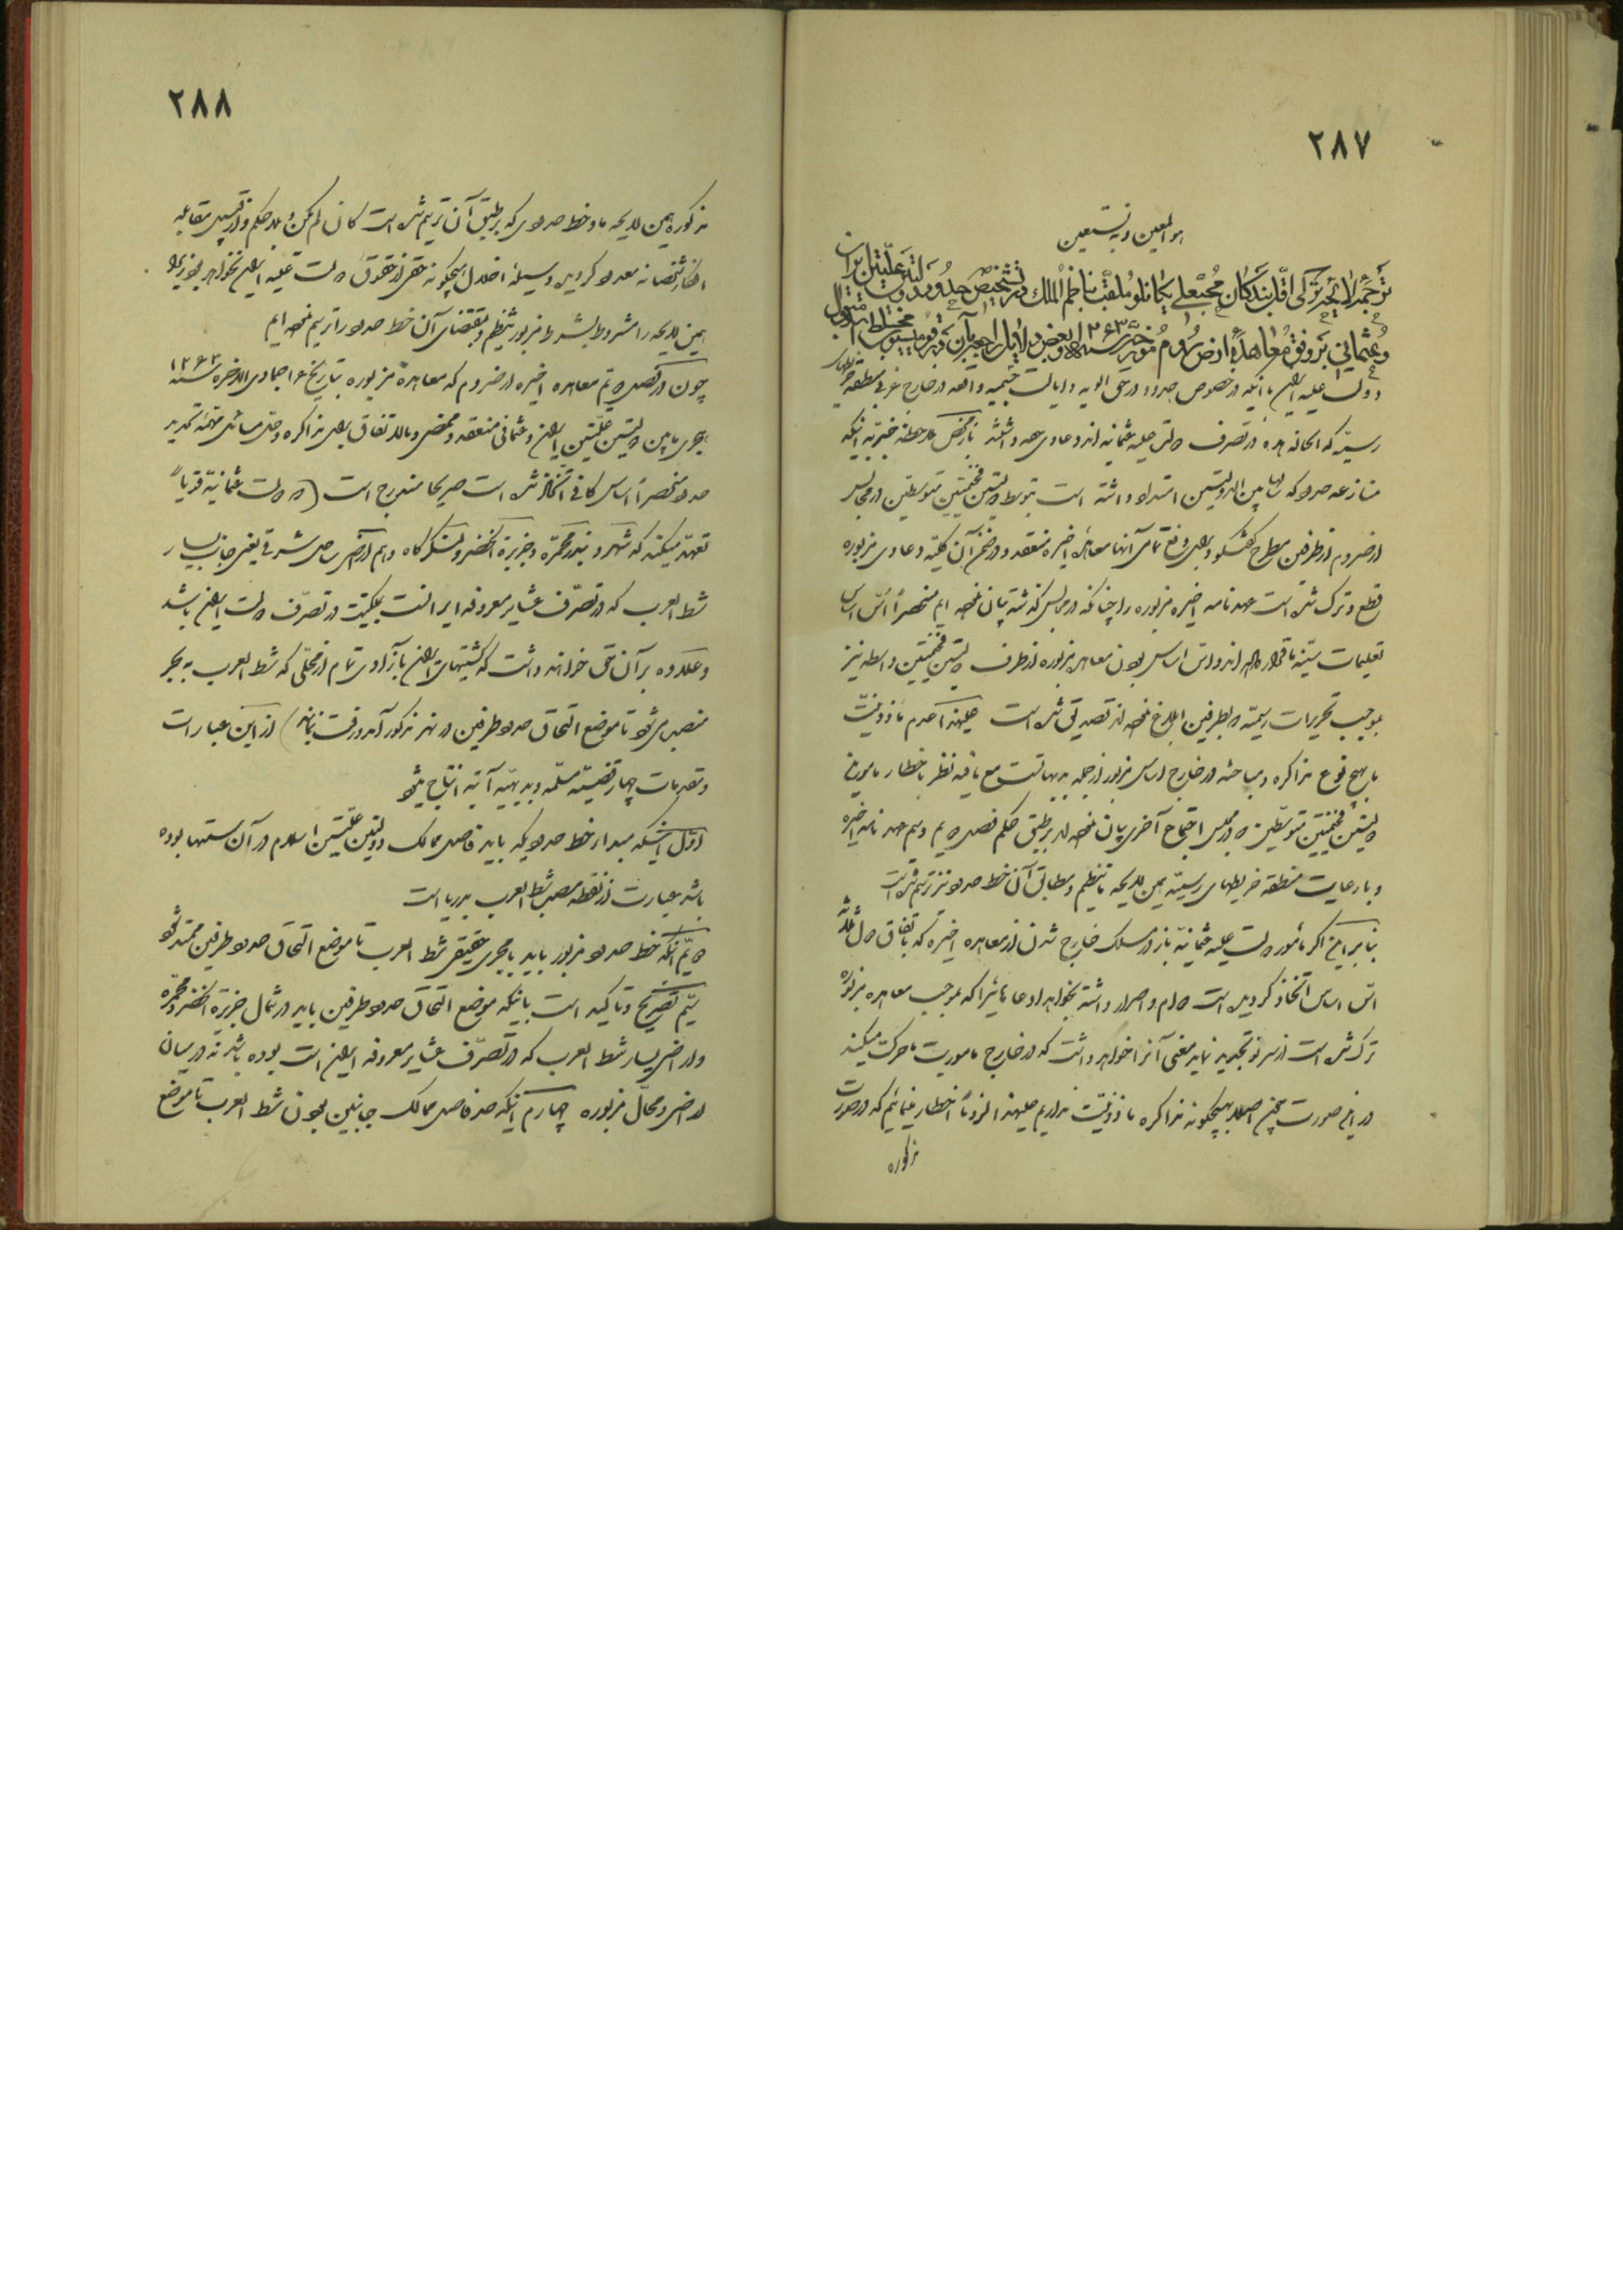 ۲۸۷
هو المعین و به نستعین
ترجمه لایحه ترکی اقل بندگان محبعلی یکانلو ملقب بناظم الملک در تشخیص حدود دولتین علیتین ایران
و عثمانی بر وفق معاهده ارض روم مورخه سنه ۱۲۶۳ و بعض دلایل راجعه بآن
دولت علیه ایران با اینکه در خصوص حدود و دعوی الویه و ایالت جسیمه واقعه در خارج غربی منطقه خریطهای
رسیه که الحاله هذه در تصرف دولت علیه عثمانیه اند دعاوی عمده داشتند بمحض ملاحظه خیریه اینکه
منازعه حدود که سالها بین الدولتین امتداد داشته است بتوسط دولتین فخیمتین متوسطتین در مجالس
ارض روم از طرفین مطرح گفتگو و برای رفع تمامی آنها معاهده اخیره منعقد و در ضمن آن کلیه دعاوی مزبوره
قطع و ترک شده است عهدنامه اخیره مزبوره را چنانکه در مجالس گذشته بیان نموده ایم منحصراً اس اساس
تعلیمات سنیه ما قرار داده اند و این اساس بودن معاهده مزبوره از طرف دولتین فخیمتین واسطه نیز
بموجب تحریرات رسمیه که بطرفین ابلاغ نموده اند تصدیق شده است علیهذا عدم ماذونیت
ما بهیچ نوع مذاکره و مباحثه در خارج اساس مزبور از جمله بدیهیات است مع ما فیه نظر باخطار مامورین
دولتین فخیمتین متوسطتین که در مجلس اجتماع آخری بیان نموده اند بر طبق حکم فصل دویم و سیم عهدنامه اخیره
و با رعایت منطقه خریطهای رسیه همین لایحه تنظیم و مطابق آن خط حدود نیز ترسیم شده است
بنابراین اگر مأمور دولت علیه عثمانیه باز در مسلک خارج شدن از معاهده اخیره که باتفاق دول ثلثه
اس اساس اتخاذ گردیده است دوام و اصرار داشته بخواهد ادعاهائی را که بموجب معاهده مزبوره
ترک شده است از سر نو تجدید نماید معنی آنرا خواهد داشت که در خارج ماموریت ما حرکت میکند
در این صورت چون اصلا بهیچگونه مذاکره ماذونیت نداریم علیهذا لزوماً اخطار مینمائیم که در صورت
مذکوره
۲۸۸
مذکوره همین لایحه ما و خط حدودی که بر طبق آن ترسیم شده است کان لم یکن و بلا حکم و از قبیل مقابله
افکار شخصانه معدود گردیده وسیله اخلال هیچگونه حقی از حقوق دولت علیه ایران نخواهد بود زیرا که
همین لایحه را مشروط بشرط مزبور تنظیم و بمقتضای آن خط حدود را ترسیم نموده ایم
چون در فصل دویم معاهده اخیره ارض روم که معاهده مزبوره بتاریخ ۱۶ جمادی الاخره سنه ۱۲۶۳
هجری مابین دولتین علیتین ایران و عثمانی منعقد و ممضی و بالاتفاق برای مذاکره و حل مسائل مهمه تحدید
حدود منحصراً اساس کافی اتخاذ شده است صریحا مندرج است (که دولت عثمانیه قویاً
تعهد میکند که شهر و بندر محمره و جزیرة الخضر و لنگرگاه و هم اراضی ساحل شرقی یعنی جانب یسار
شط العرب که در تصرف عشایر معروفه ایرانست بملکیت در تصرف دولت ایران باشد
و علاوه بر آن حق خواهند داشت که کشتیهای ایران بآزادی تمام از محلی که شط العرب به بحر
منصب میشود تا موضع التحاق حدود طرفین در نهر مذکور آمد و رفت نمایند) از این عبارات
و مقدمات چهار قضیه مسلمه و بدیهیه آتیه انتاج میشود
اول اینکه مبداء خط حدودیکه باید فاصل ممالک دولتین علیتین اسلام در آن سمتها بوده
باشد عبارت از نقطه مصب شط العرب بدریا است
دویم آنکه خط حدود مزبور باید با مجری حقیقی شط العرب تا موضع التحاق حدود طرفین ممتد شود
سیم تصریح و تاکید است باینکه موضع التحاق حدود طرفین باید در شمال جزیرة الخضر و محمره
و اراضی یسار شط العرب که در تصرف عشایر معروفه ایران است بوده باشد نه در میان
اراضی و محال مزبوره چهارم اینکه حد فاصل ممالک جانبین بودن شط العرب تا موضع